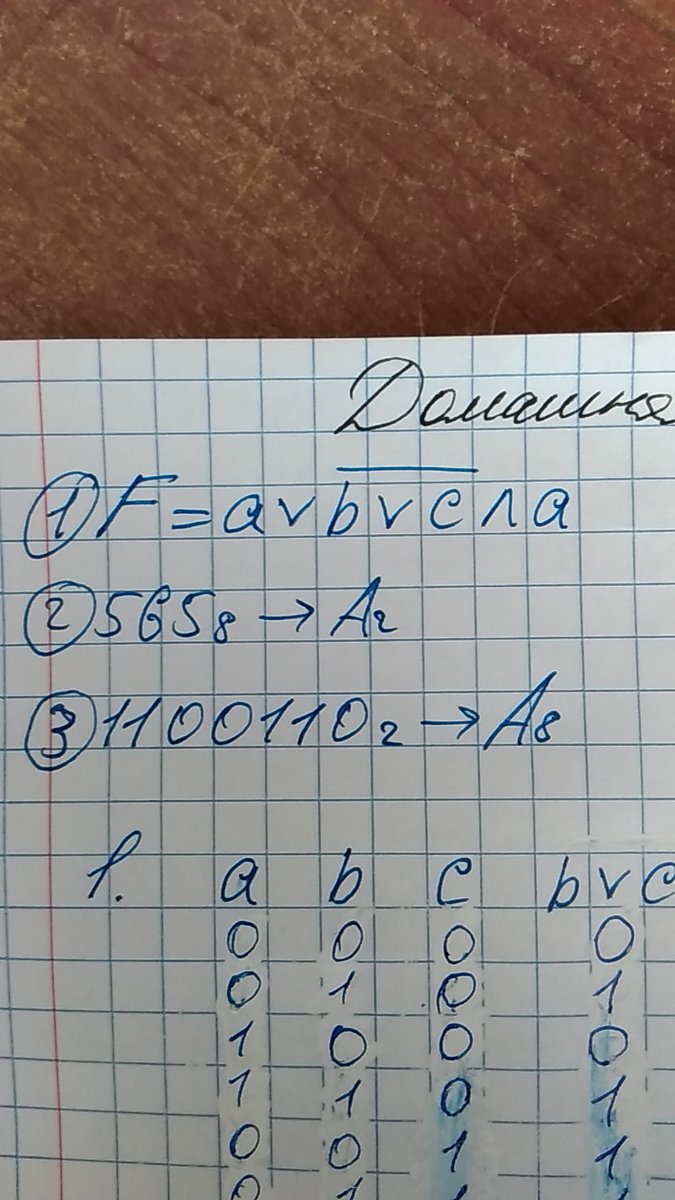 Домашня
① F = a v b̅ ̅v̅ ̅c̅ ʌ a
② 565₈ → A₂
③ 1100110₂ → A₈
1. a b c b v c
0 0 0 0
0 1 0 1
1 0 0 0
1 1 0 1
0 0 1 1